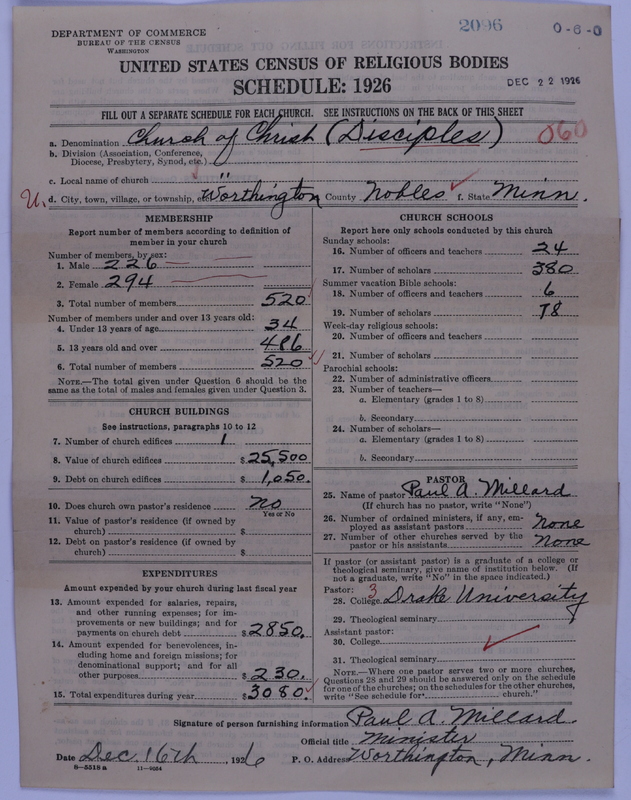 2096
0-6-0
DEPARTMENT OF COMMERCE
BUREAU OF THE CENSUS
WASHINGTON
UNITED STATES CENSUS OF RELIGIOUS BODIES
SCHEDULE: 1926
DEC 22 1926
FILL OUT A SEPARATE SCHEDULE FOR EACH CHURCH. SEE INSTRUCTIONS ON THE BACK OF THIS SHEET
a. Denomination Church of Christ (Disciples) 060
b. Division (Association, Conference,
Diocese, Presbytery, Synod, etc.)
c. Local name of church "
U. d. City, town, village, or township, etc. Worthington County Nobles f. State Minn.
MEMBERSHIP
Report number of members according to definition of
member in your church
Number of members, by sex:
1. Male 226
2. Female 294
3. Total number of members 520
Number of members under and over 13 years old:
4. Under 13 years of age 34
5. 13 years old and over 486
6. Total number of members 520
NOTE.—The total given under Question 6 should be the
same as the total of males and females given under Question 3.
CHURCH BUILDINGS
See instructions, paragraphs 10 to 12
7. Number of church edifices 1
8. Value of church edifices $25,500
9. Debt on church edifices $1,050.
10. Does church own pastor's residence no
Yes or No
11. Value of pastor's residence (if owned by
church) $
12. Debt on pastor's residence (if owned by
church) $
EXPENDITURES
Amount expended by your church during last fiscal year
13. Amount expended for salaries, repairs,
and other running expenses; for im-
provements or new buildings; and for
payments on church debt $2850.
14. Amount expended for benevolences, in-
cluding home and foreign missions; for
denominational support; and for all
other purposes $230.
15. Total expenditures during year $3080.
CHURCH SCHOOLS
Report here only schools conducted by this church
Sunday schools:
16. Number of officers and teachers 24
17. Number of scholars 380
Summer vacation Bible schools:
18. Number of officers and teachers 6
19. Number of scholars 78
Week-day religious schools:
20. Number of officers and teachers
21. Number of scholars
Parochial schools:
22. Number of administrative officers
23. Number of teachers—
a. Elementary (grades 1 to 8)
b. Secondary
24. Number of scholars—
a. Elementary (grades 1 to 8)
b. Secondary
PASTOR
25. Name of pastor Paul A. Millard
(If church has no pastor, write "None")
26. Number of ordained ministers, if any, em-
ployed as assistant pastors none
27. Number of other churches served by the
pastor or his assistants none
If pastor (or assistant pastor) is a graduate of a college or
theological seminary, give name of institution below. (If
not a graduate, write "No" in the space indicated.)
Pastor: 3
28. College Drake University
29. Theological seminary
Assistant pastor:
30. College
31. Theological seminary
NOTE.—Where one pastor serves two or more churches,
Questions 28 and 29 should be answered only on the schedule
for one of the churches; on the schedules for the other churches,
write "See schedule for church."
Signature of person furnishing information Paul A. Millard.
Official title Minister
Date Dec. 16th, 1926 P. O. Address Worthington, Minn.
8—5518 a 11—9054